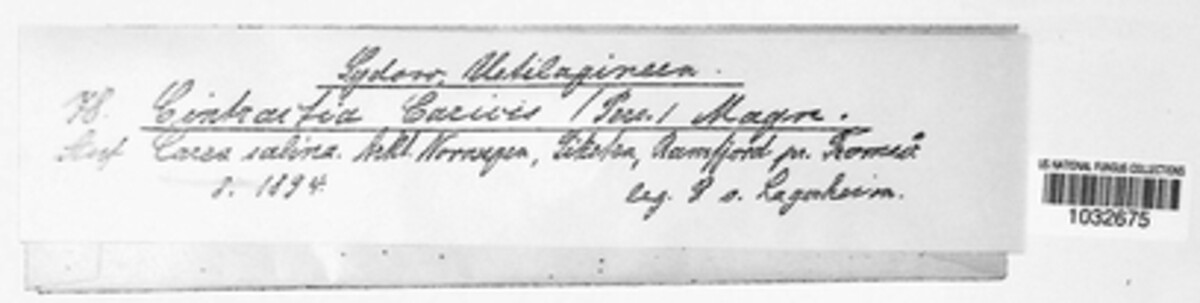 Sydow, Ustilagineen.
78. Cintractia Caricis (Pers.) Magn.
Auf Carex salina. Arkt. Norwegen, Ramfjord pr. Tromsö
8. 1894. leg. G v. Lagerheim.
US NATIONAL FUNGUS COLLECTIONS
1032675